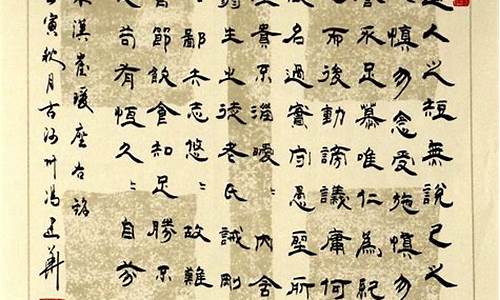 道人之短無說己之
慎勿念受施慎勿
不足慕唯仁為紀
而後動謗議庸何
名過實守愚聖所
貴不淄曖〻內含
弱生之徒老氏誡剛
〻鄙夫志悠〻故難
節飲食知足勝不
之苟有恆久〻自芬
漢崔瑗座右銘
寅秋月古河州馮